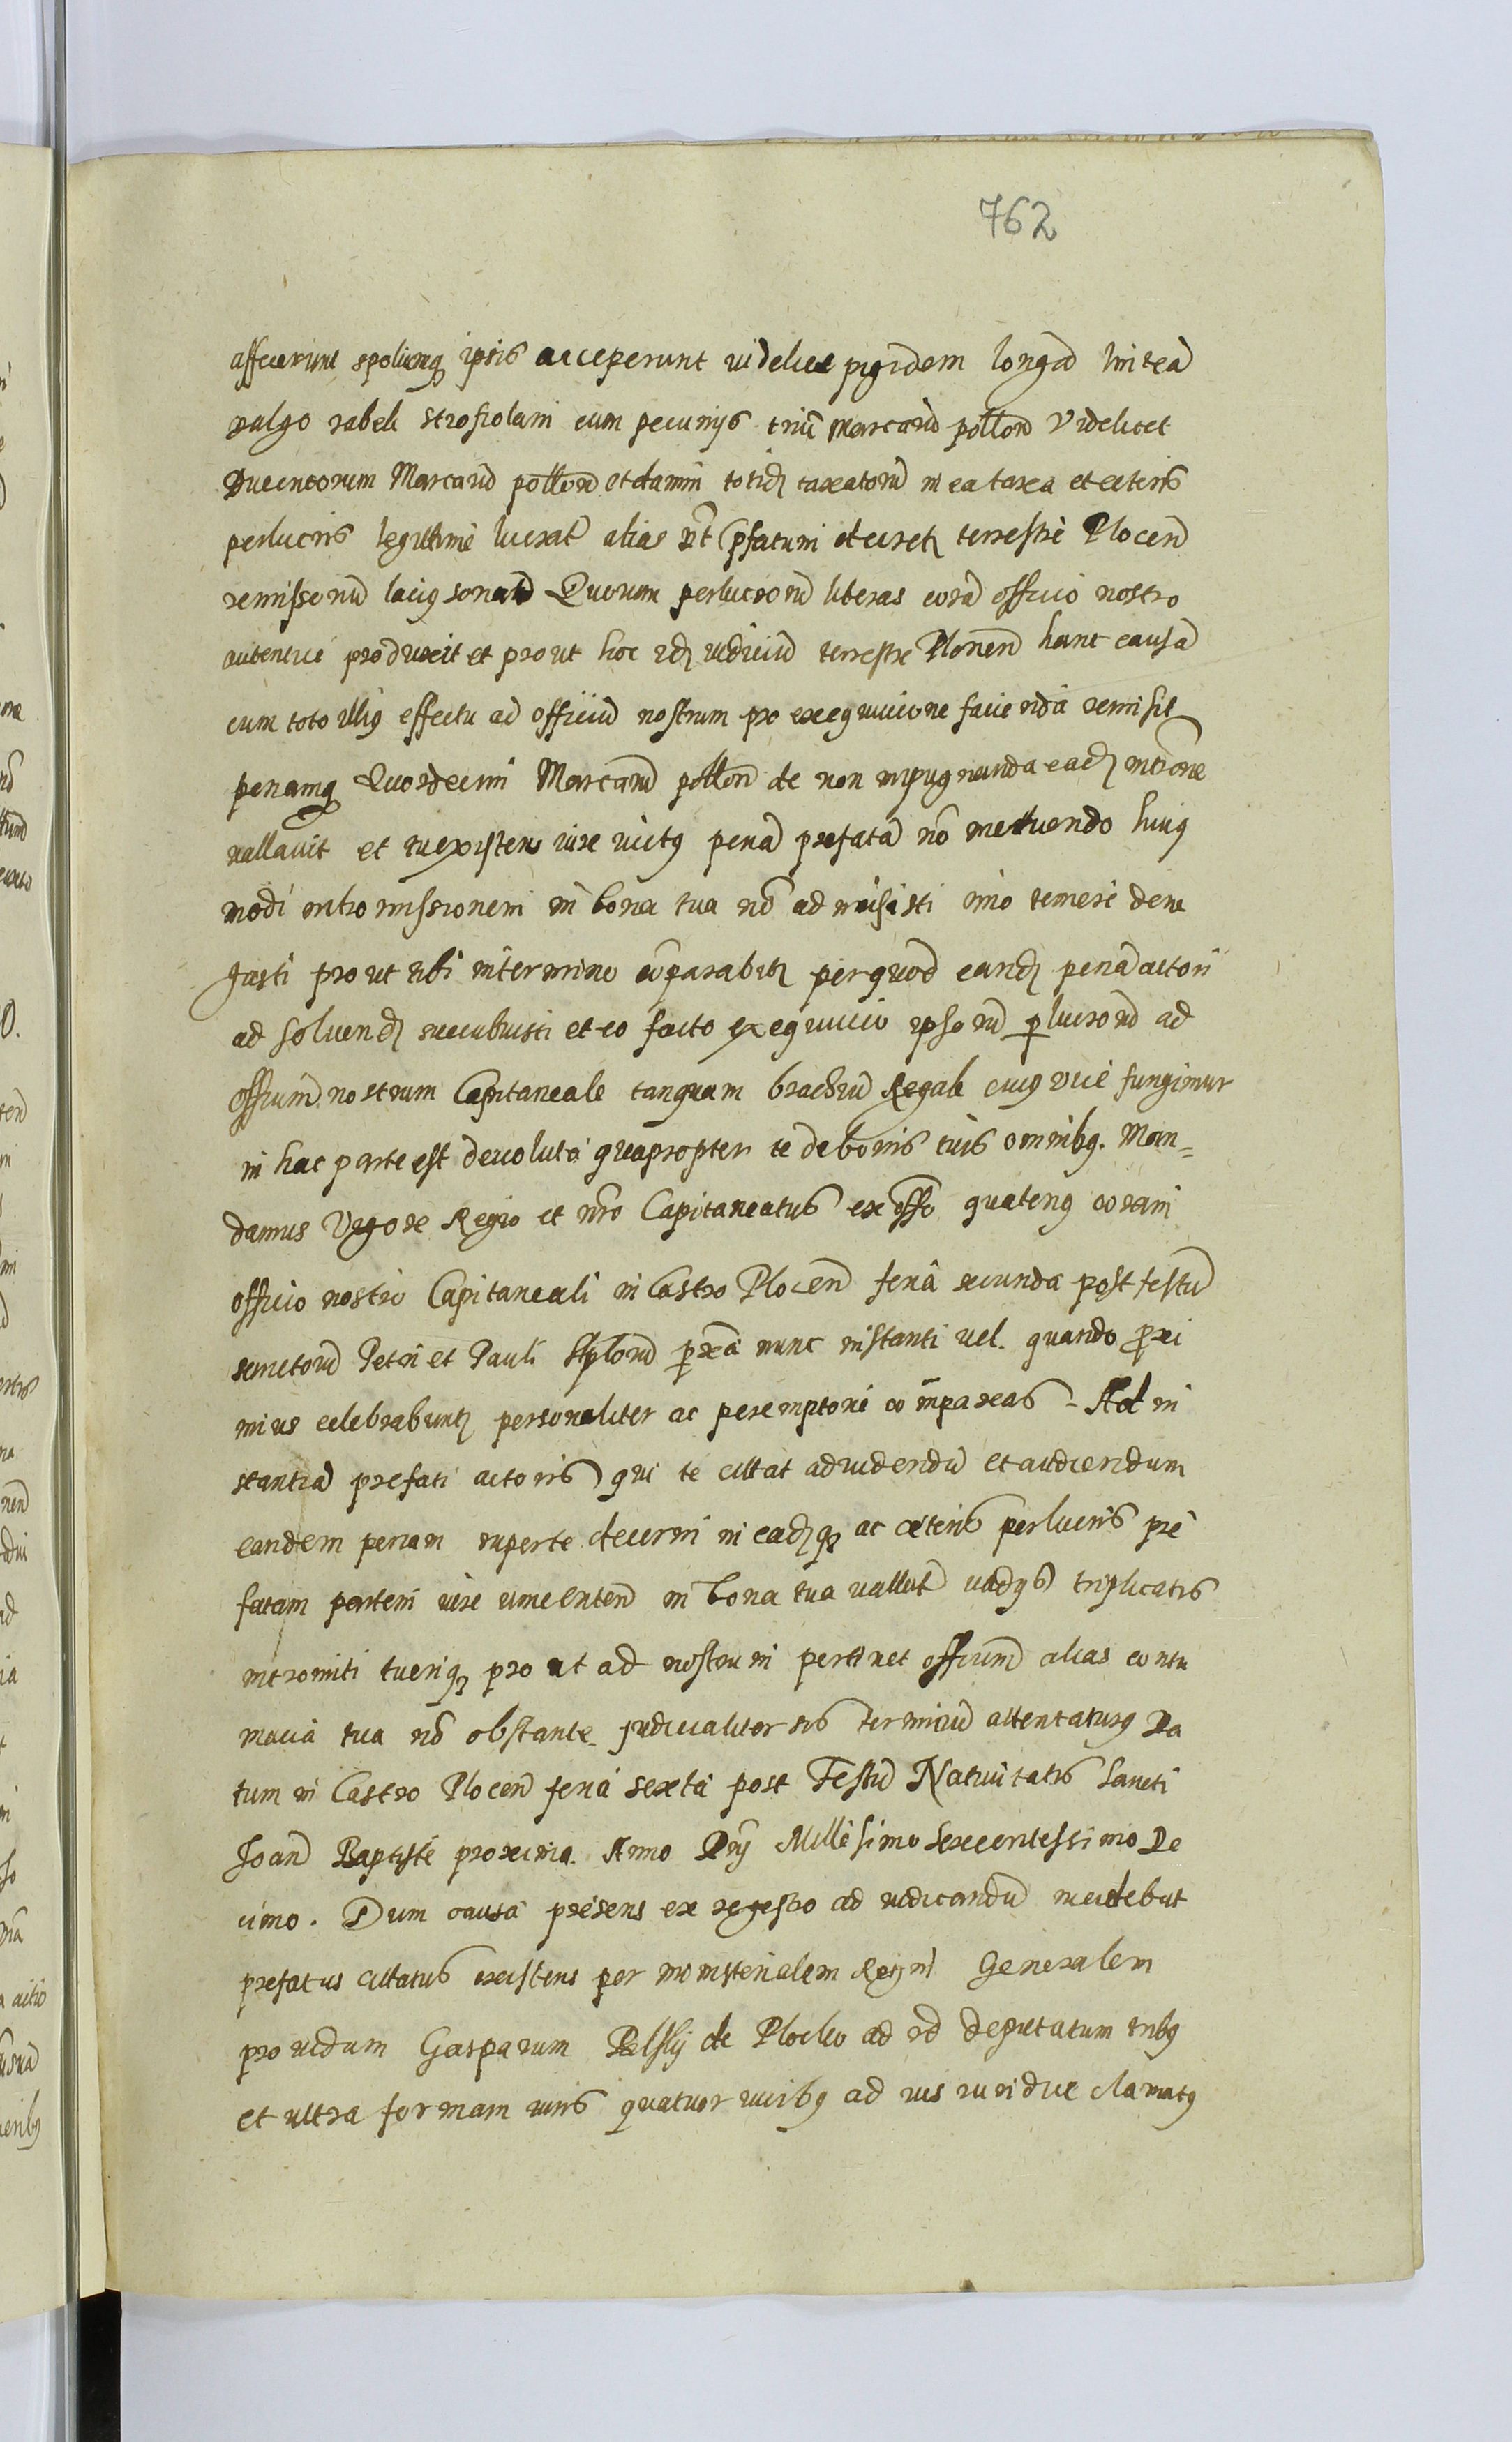 762
affecerunt spoliumq ipsis acceperunt videlicet pixidem longã linteã
vulgo rabek strofiolum cum pecunijs triũ Marcarũ pollon Videlicet
Ducentorum Marcarũ pollon et damni totidẽ taxatorũ in ea taxa et ceteris
perlucris legittime lucrat alias ut pfatum decretũ terrestre Plocen
remissorũ lacius sonatũ Quorum perlucrorũ literas corã officio nostro
autentice produxit et prout hoc idẽ iudiciũ terrestre Plonen hanc causã
cum toto illiꝯ effectu ad officiũ nostrum pro exequucione facienda remisit
penamq Quordecim Marcarũ pollon de non inpugnanda eadẽ intrõne
vallavit et tu existens iure victꝯ penã prefatã nõ metuendo huiꝯ
modi intromissionem in bona tua nõ admisisti imo temere dene
gasti prout tibi in termino cõparabitẽ per quod eandẽ penã actori
ad solvendũ succubuisti et eo facto exequucio ipsorũ plucrorũ ad
officium nostrum Capitaneale tanquam brachiũ Regale cuiꝯ vice fungimur
in hac parte est devoluta quapropter te de bonis tuis omnibꝯ. Man=
damus Vigore Regio et nr̃o Capitaneatus ex offo quatenꝯ coram
officio nostro Capitaneali in Castro Plocen feria secunda post festũ
sanctorũ Petri et Pauli Aplorũ pxã nunc instanti vel quando proxi
mius celebrabuntũ personaliter ac peremptorie compareas - Ad in
stantiã prefati actoris qui te cittat ad videndũ et audiendum
eandem penam in perte decerni in eadẽqꝫ ac ceteris perlucris pre
fatam partem iure vincenten in bona tua vallat vadys triplicatis
intromiti tueriqꝫ prout ad nostrum pertinet officiũ alias contu
macia tua nõ obstante Judicialiter sis terminũ attentaturꝯ Da
tum in Castro Plocen feria sexta post Festũ Nativitatis Sancti
Joan Baptiste proxima. Anno Dnj Millesimo Sexcentessimo De
cimo. Dum causa presens ex regestro ad iudicandũ incidebat
prefatus cittatus existens per ministerialem Regni Generalem
providum Gasparum Belsky de Plocko ad id deputatum tribꝯ
et ultra formam iuris quatuor vicibꝯ ad ius iuridice clamatꝯ